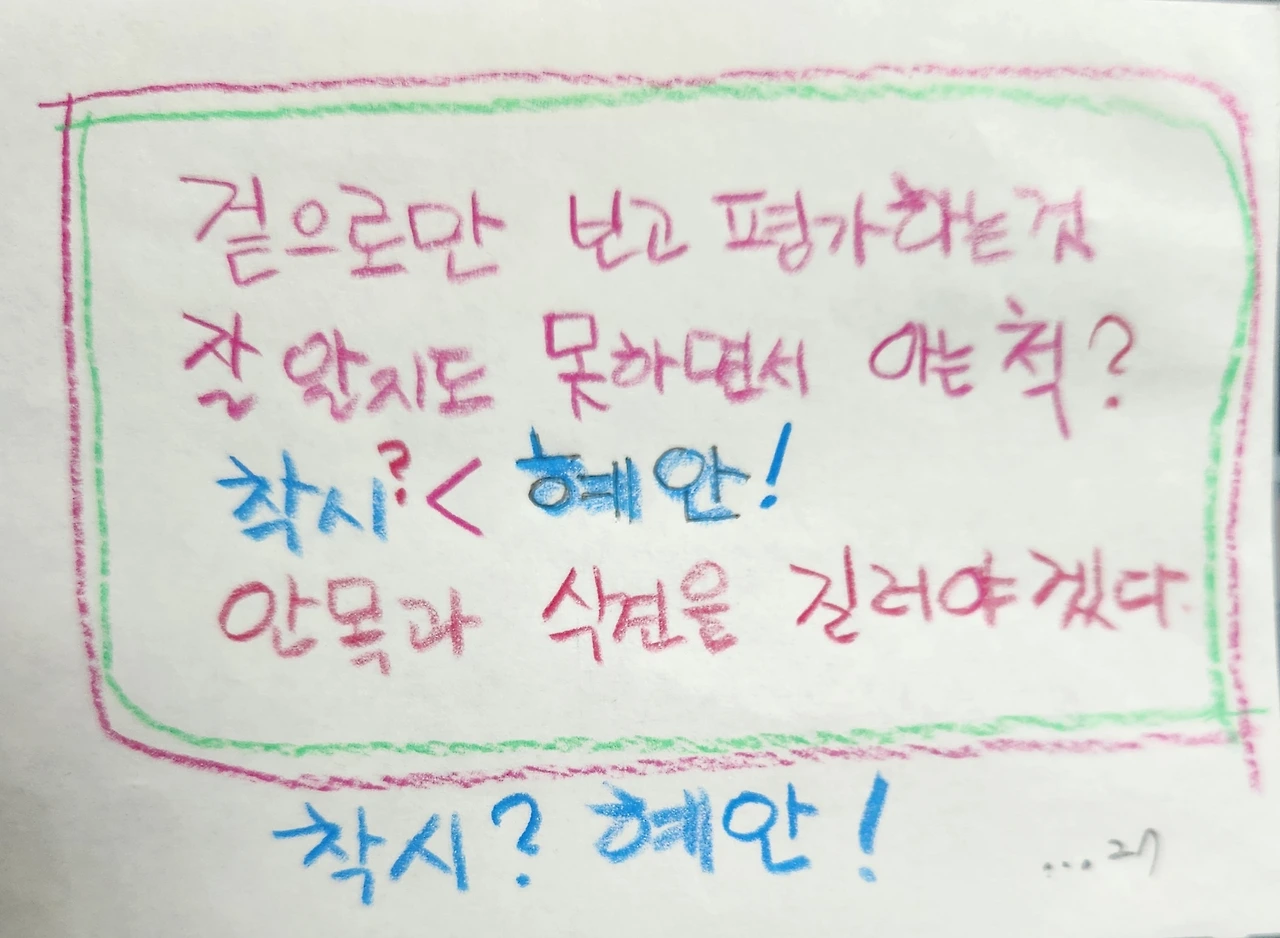 겉으로만 보고 평가하는것
잘 알지도 못하면서 아는척?
착시?< 혜안!
안목과 식견을 길러야겠다.
착시? 혜안!
...27